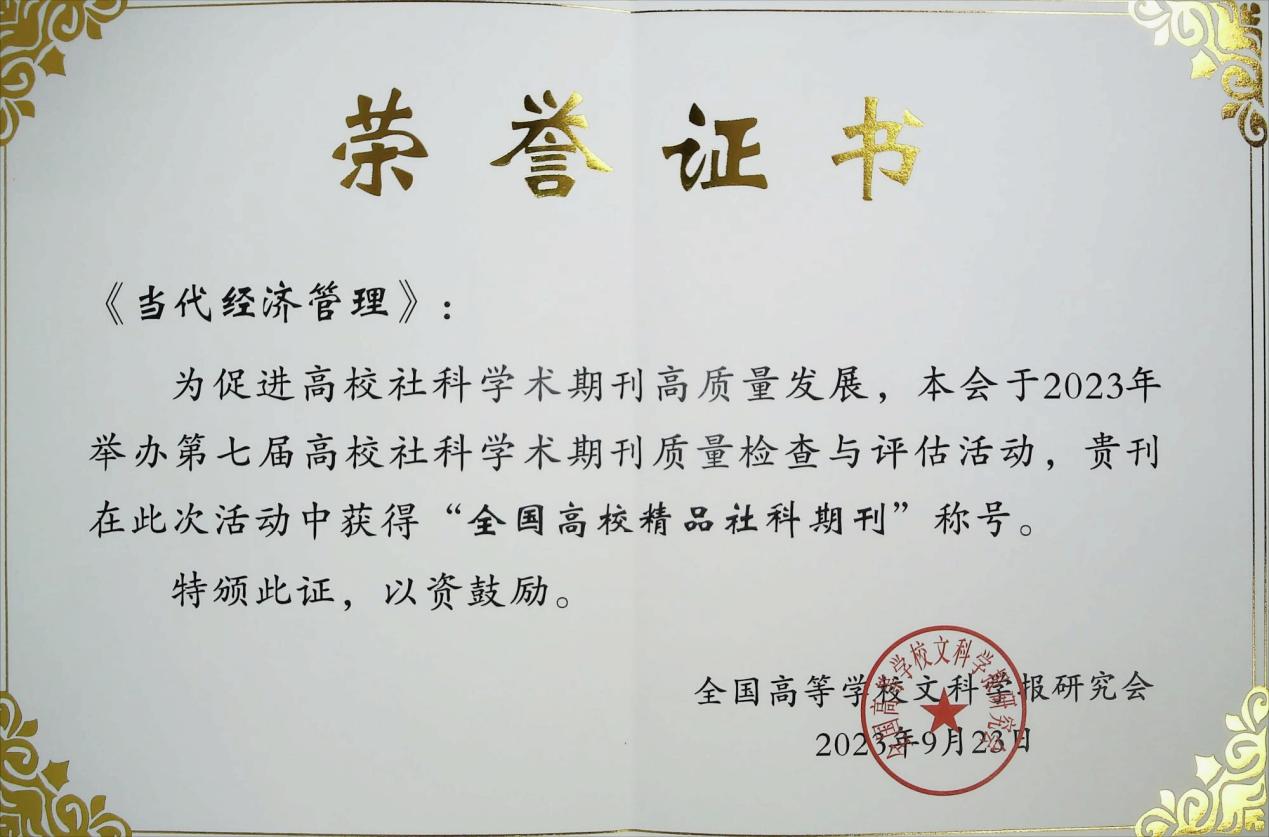 荣誉证书
《当代经济管理》：
为促进高校社科学术期刊高质量发展，本会于2023年
举办第七届高校社科学术期刊质量检查与评估活动，贵刊
在此次活动中获得“全国高校精品社科期刊”称号。
特颁此证，以资鼓励。
全国高等学校文科学报研究会
2023年9月23日
全国高等学校文科学报研究会